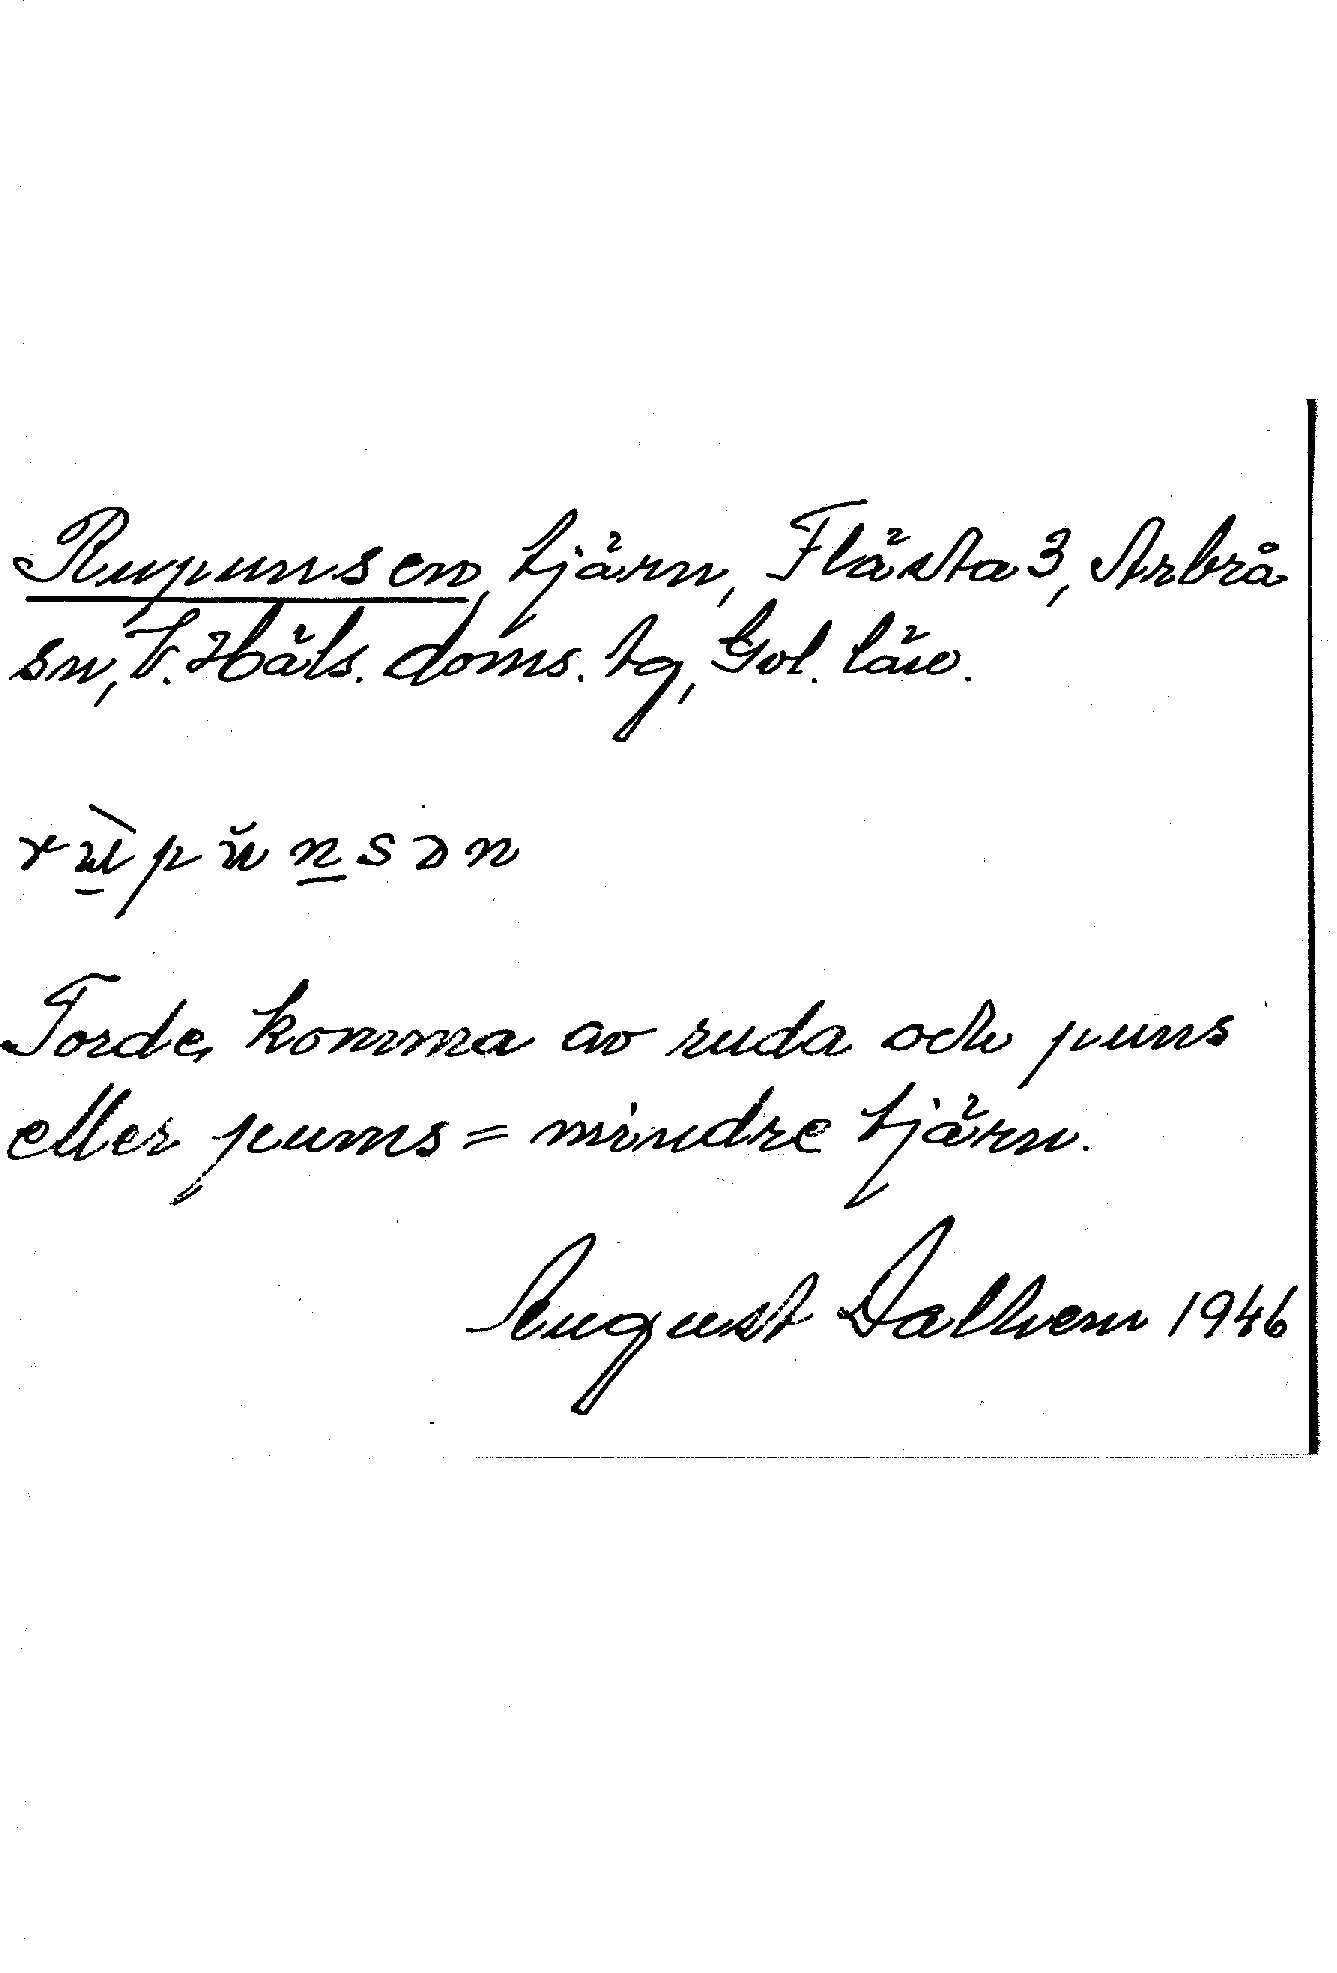 Rupunsen, tjärn, Flästa 3, Arbrå
sn, V. Häls. doms. tg, Gvl. län.
rùpŭnsən
Torde komma av ruda och puns
eller pums = mindre tjärn.
August Dalhem 1946